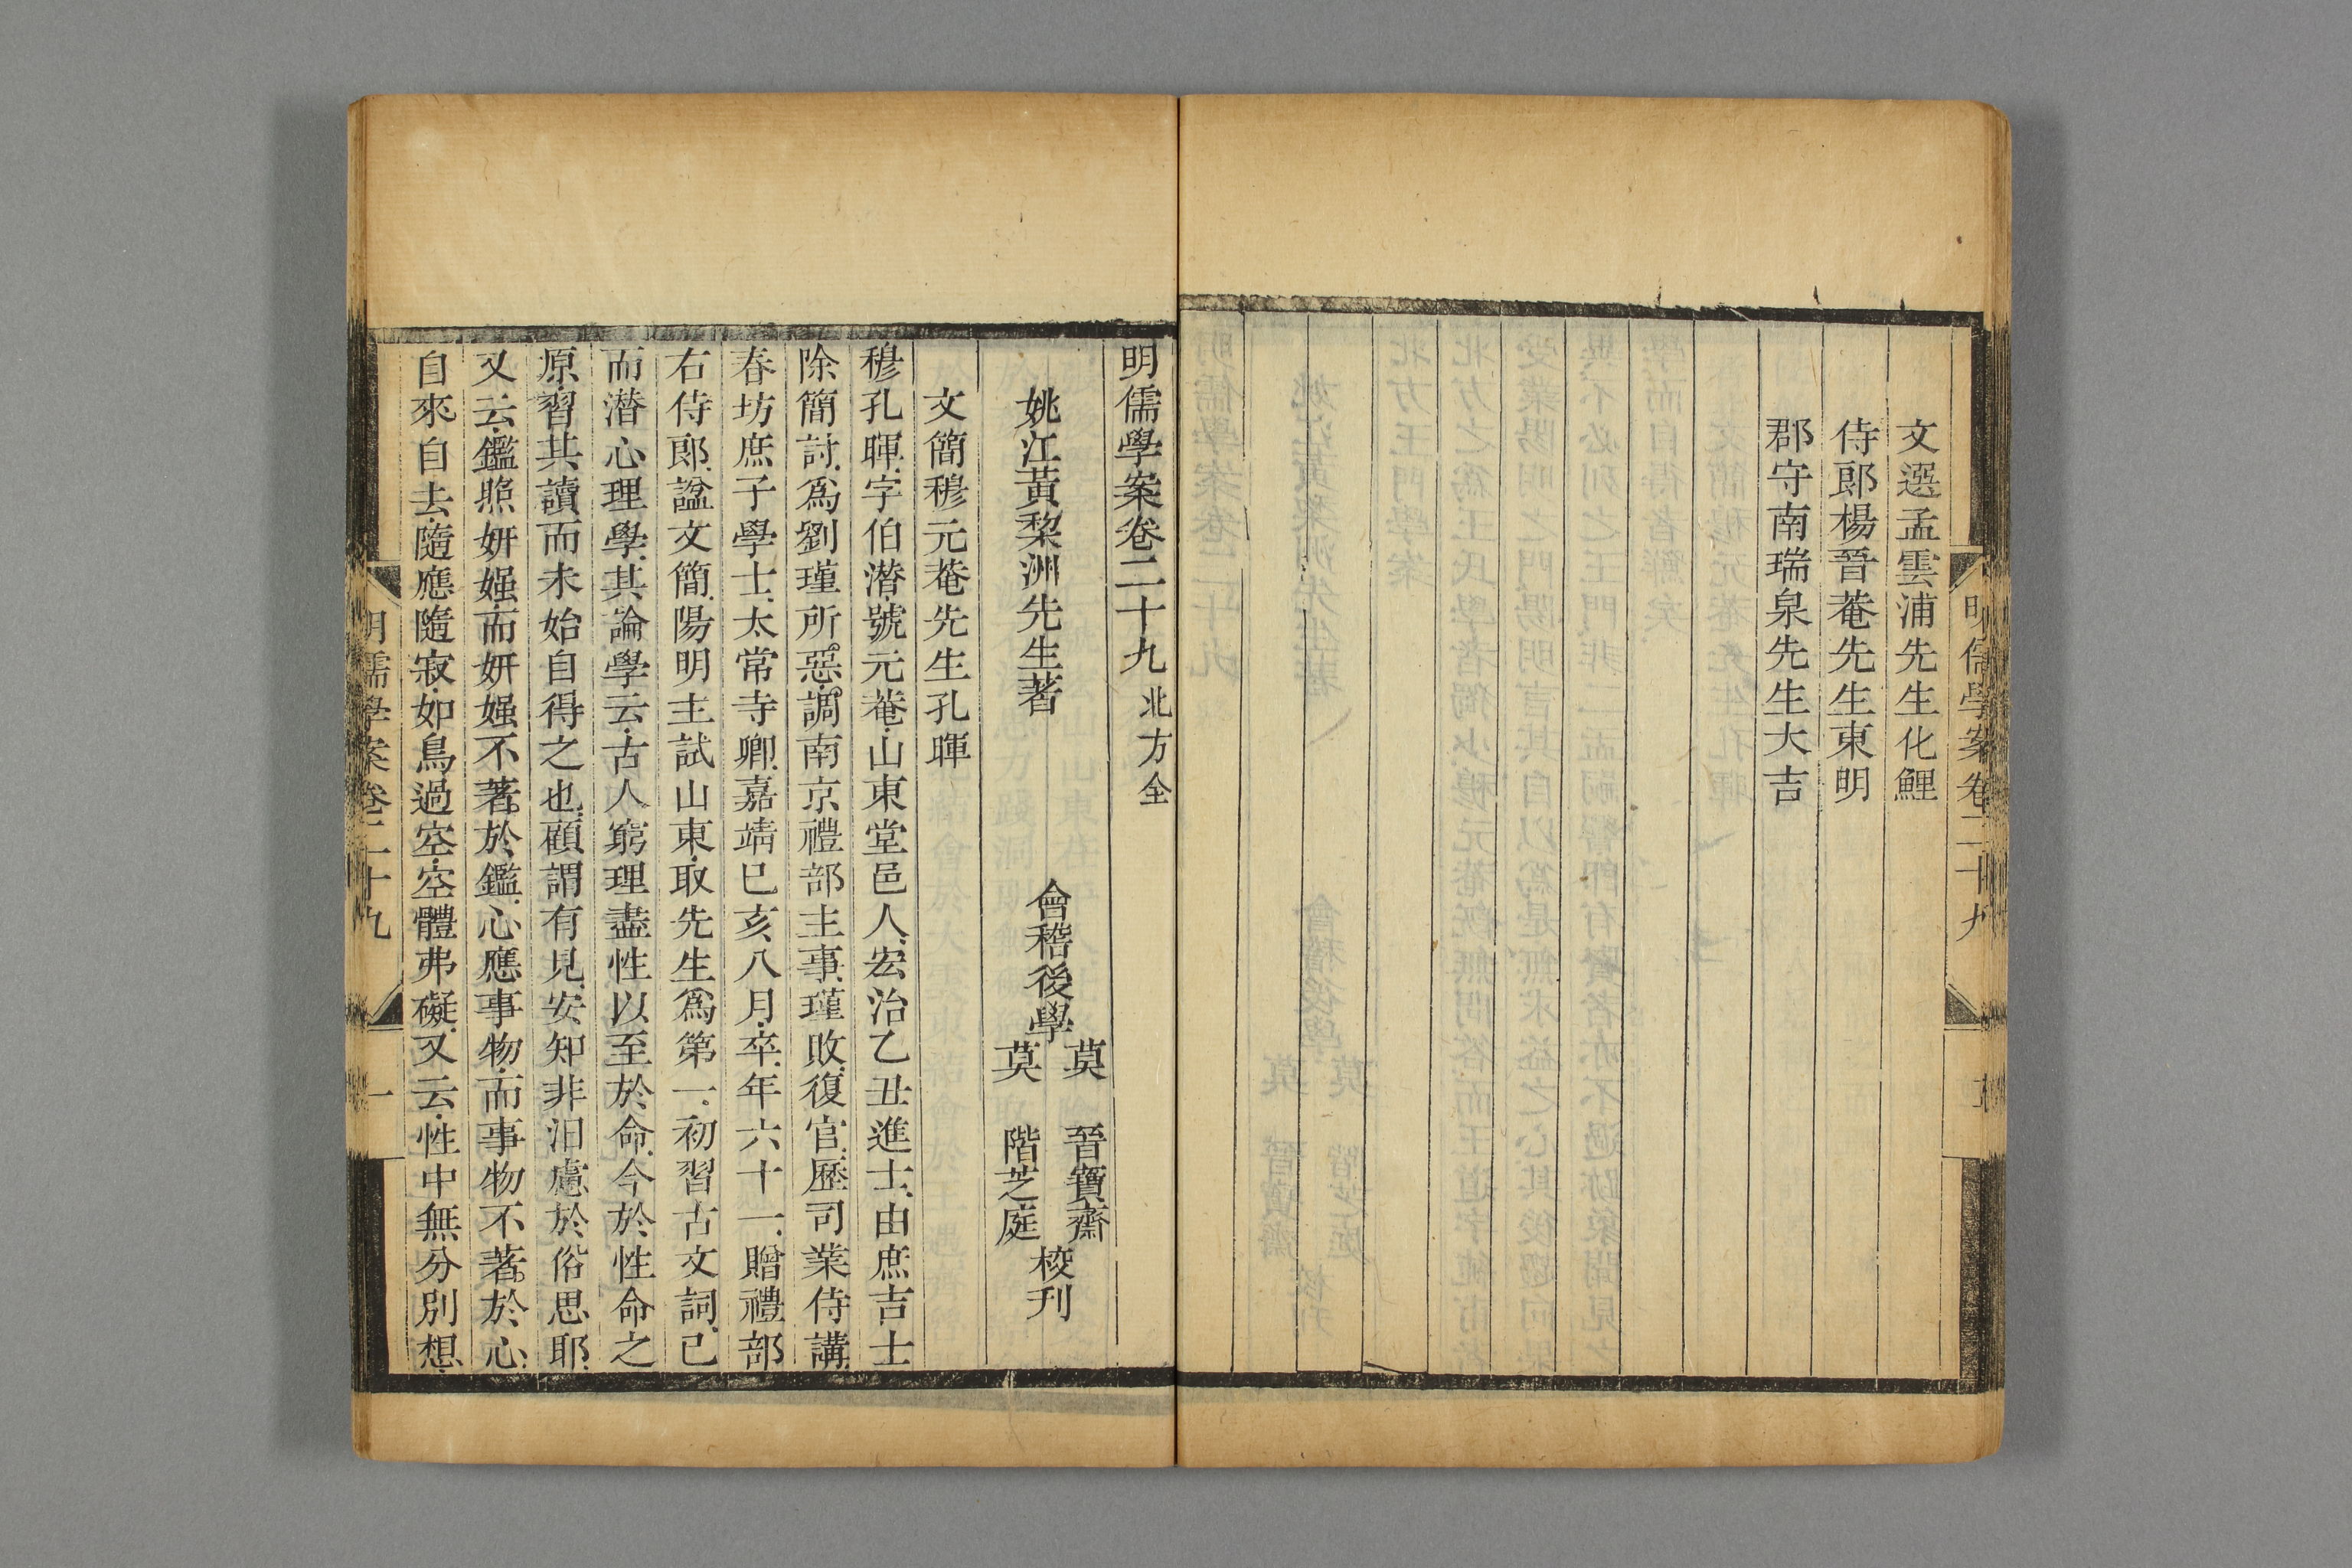 明儒學案卷二十九
五
文選孟雲浦先生化鯉
侍郎楊晉菴先生東明
郡守南瑞泉先生大吉
明儒學案卷二十九 北方全
姚江黃棃洲先生著
會稽後學
莫 晉寶齋
莫 階芝庭
校刊
文簡穆元菴先生孔暉
穆孔暉字伯潛號元菴山東堂邑人宏治乙丑進士由庶吉士
除簡討爲劉瑾所惡調南京禮部主事瑾敗復官歷司業侍講
春坊庶子學士太常寺卿嘉靖已亥八月卒年六十一贈禮部
右侍郞謚文簡陽明主試山東取先生爲第一初習古文詞已
而潛心理學其論學云古人窮理盡性以至於命今於性命之
原習其讀而未始自得之也顧謂有見安知非汨慮於俗思耶
又云鑑照妍媸而妍媸不著於鑑心應事物而事物不著於心
自來自去隨應隨寂如鳥過空空體弗礙又云性中無分別想
明儒學案卷二十九
一